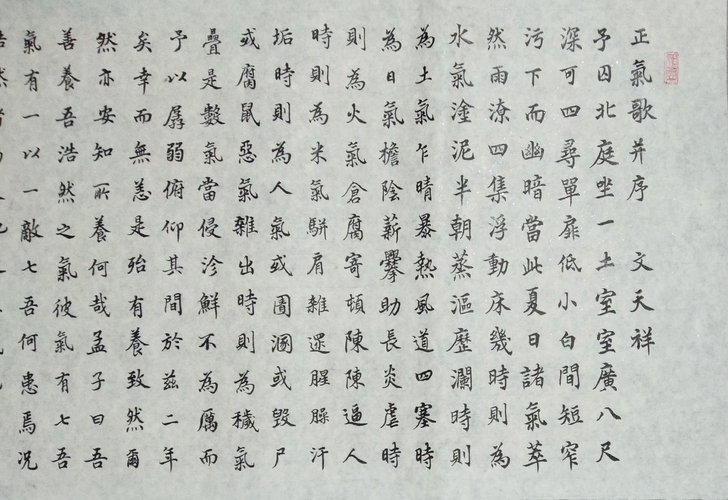 正氣歌并序 文天祥
予囚北庭坐一土室室廣八尺
深可四尋單扉低小白間短窄
污下而幽暗當此夏日諸氣萃
然雨潦四集浮動床幾時則為
水氣塗泥半朝蒸漚歷瀾時則
為土氣乍晴暴熱風道四塞時
為日氣檐陰薪爨助長炎虐時
則為火氣倉腐寄頓陳陳逼人
時則為米氣駢肩雜遝腥臊汗
垢時則為人氣或圊溷或毀尸
或腐鼠惡氣雜出時則為穢氣
疊是數氣當侵沴鮮不為厲而
予以孱弱俯仰其間於茲二年
矣幸而無恙是殆有養致然爾
然亦安知所養何哉孟子曰吾
善養吾浩然之氣彼氣有七吾
氣有一以一敵七吾何患焉況